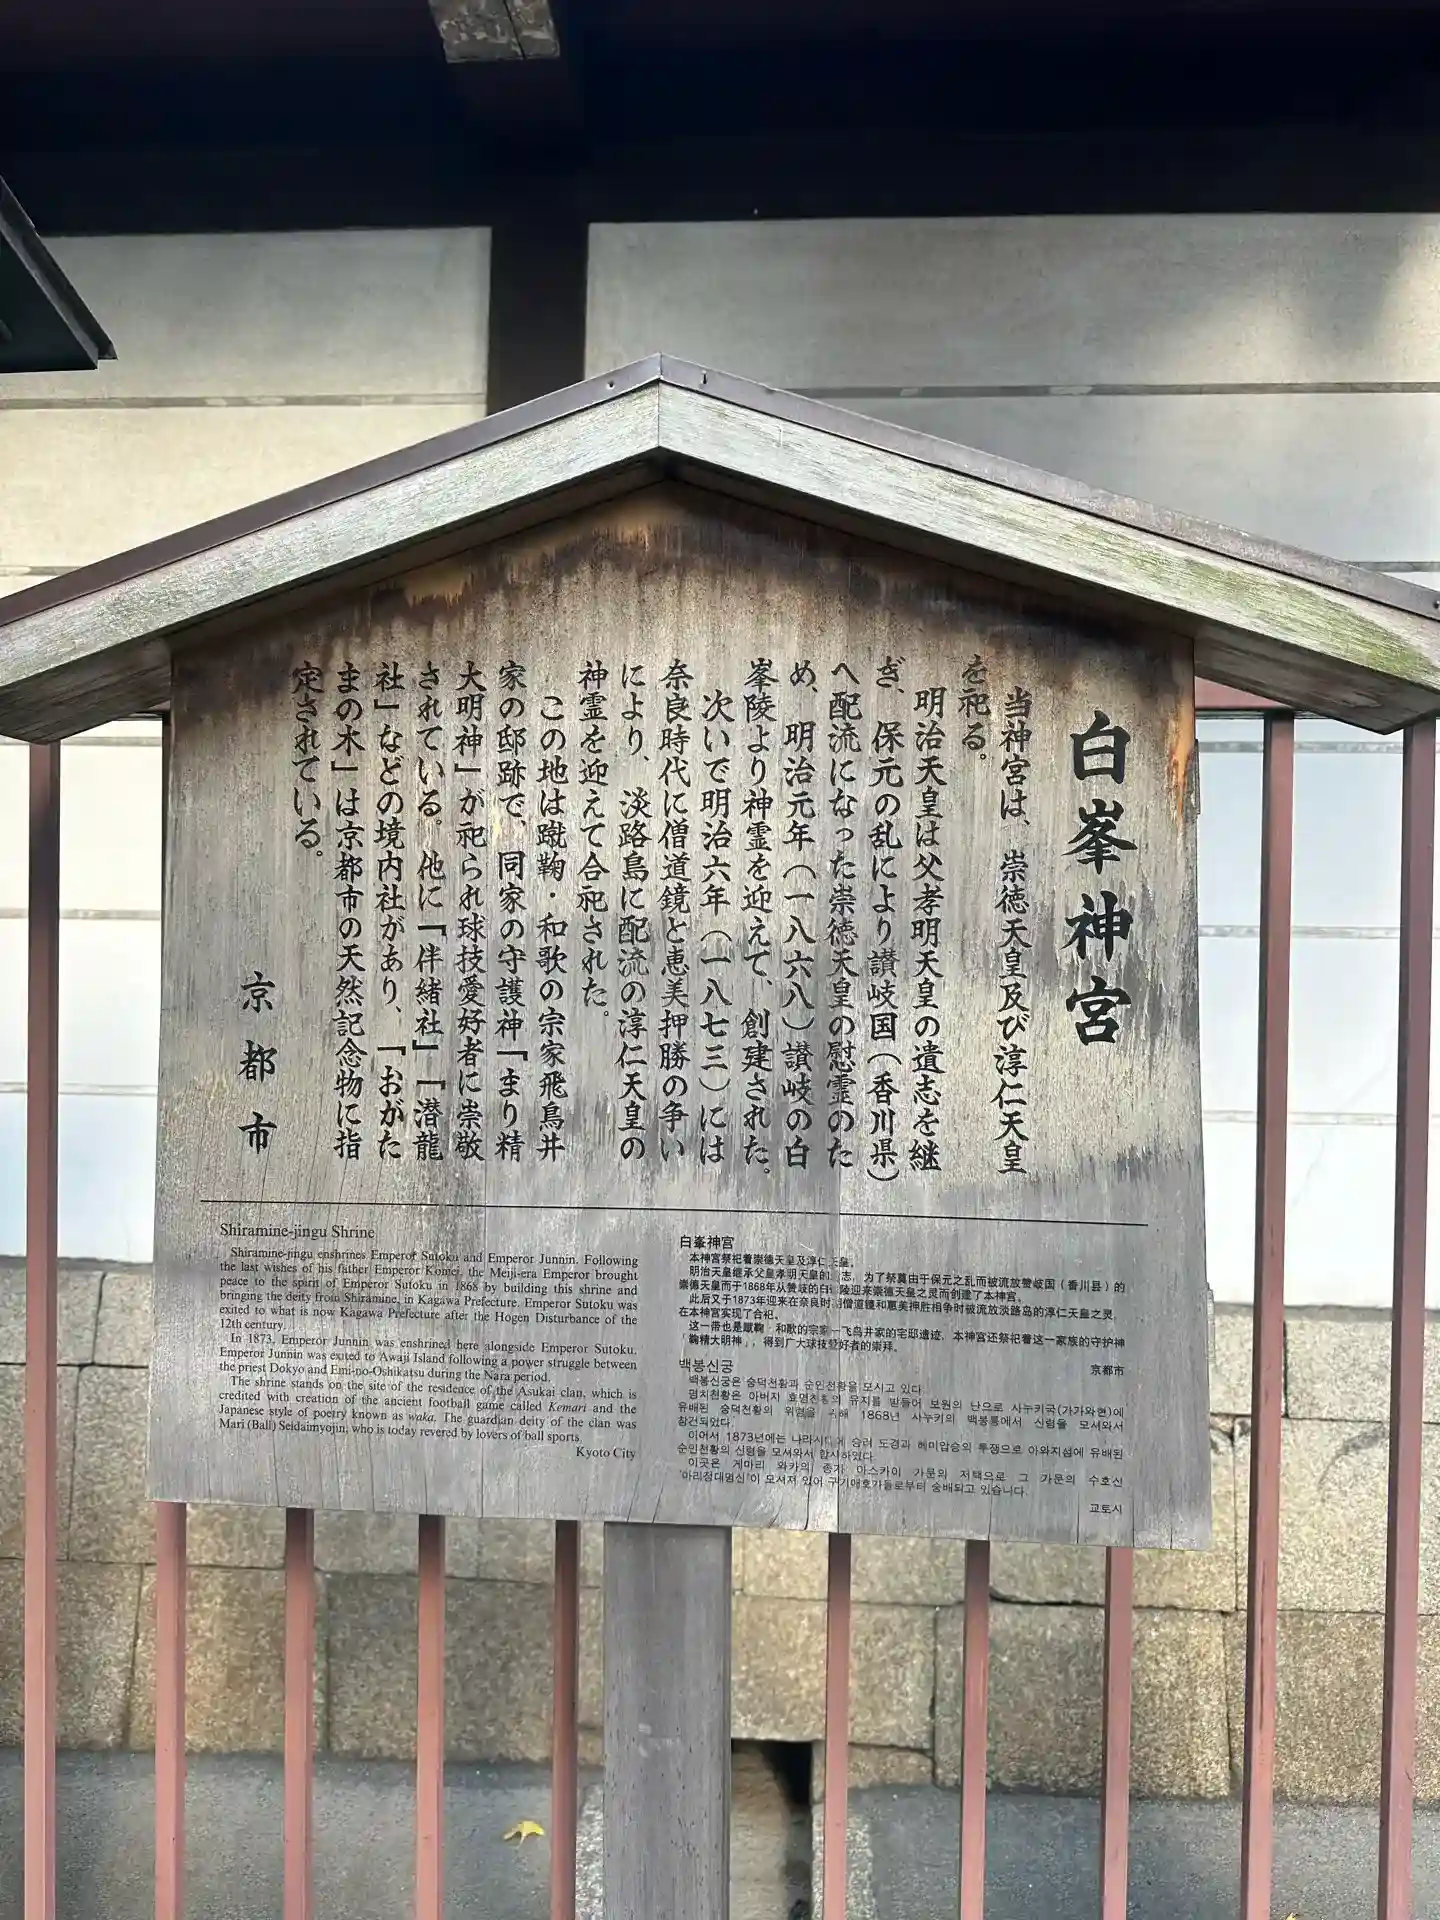 白峯神宮
当神宮は、崇徳天皇及び淳仁天皇
を祀る。
明治天皇は父孝明天皇の遺志を継
ぎ、保元の乱により讃岐国（香川県）
へ配流になった崇徳天皇の慰霊のた
め、明治元年（一八六八）讃岐の白
峯陵より神霊を迎えて、創建された。
次いで明治六年（一八七三）には
奈良時代に僧道鏡と恵美押勝の争い
により、淡路島に配流の淳仁天皇の
神霊を迎えて合祀された。
この地は蹴鞠・和歌の宗家飛鳥井
家の邸跡で、同家の守護神「まり精
大明神」が祀られ球技愛好者に崇敬
されている。他に「伴緒社」「潜龍
社」などの境内社があり、「おがた
まの木」は京都市の天然記念物に指
定されている。
京都市
Shiramine-jingu Shrine
Shiramine-jingu enshrines Emperor Sutoku and Emperor Junnin. Following
the last wishes of his father Emperor Komei, the Meiji-era Emperor brought
peace to the spirit of Emperor Sutoku in 1868 by building this shrine and
bringing the deity from Shiramine, in Kagawa Prefecture. Emperor Sutoku was
exited to what is now Kagawa Prefecture after the Hogen Disturbance of the
12th century.
In 1873, Emperor Junnin was enshrined here alongside Emperor Sutoku.
Emperor Junnin was exited to Awaji Island following a power struggle between
the priest Dokyo and Emi-no-Oshikatsu during the Nara period.
The shrine stands on the site of the residence of the Asukai clan, which is
credited with creation of the ancient football game called Kemari and the
Japanese style of poetry known as waka. The guardian deity of the clan was
Mari (Ball) Seidaimyojin, who is today revered by lovers of ball sports.
Kyoto City
白峯神宫
本神宫祭祀着崇德天皇及淳仁天皇。
明治天皇继承父皇孝明天皇的 志，为了祭奠由于保元之乱而被流放赞岐国（香川县）的
崇德天皇而于1868年从赞岐的白 陵迎来崇德天皇之灵而创建了本神宫。
此后又于1873年迎来在奈良时 僧道镜和惠美押胜相争时被流放淡路岛的淳仁天皇之灵，
在本神宫实现了合祀。
这一带也是蹴鞠·和歌的宗家—飞鸟井家的宅邸遗迹，本神宫还祭祀着这一家族的守护神
「鞠精大明神」，得到广大球技爱好者的崇拜。
京都市
백봉신궁
백봉신궁은 숭덕천황과 순인천황을 모시고 있다.
명치천황은 아버지 효명천황의 유지를 받들어 보원의 난으로 사누키국(가가와현)에
유배된 숭덕천황의 위령을 위해 1868년 사누키의 백봉릉에서 신령을 모셔와서
창건되었다.
이어서 1873년에는 나라시대에 승려 도경과 혜미압승의 투쟁으로 아와지섬에 유배된
순인천황의 신령을 모셔와서 합사하였다.
이곳은 게마리 와카의 종가 아스카이 가문의 저택으로 그 가문의 수호신
'마리정대명신'이 모셔져 있어 구기애호가들로부터 숭배되고 있습니다.
교토시